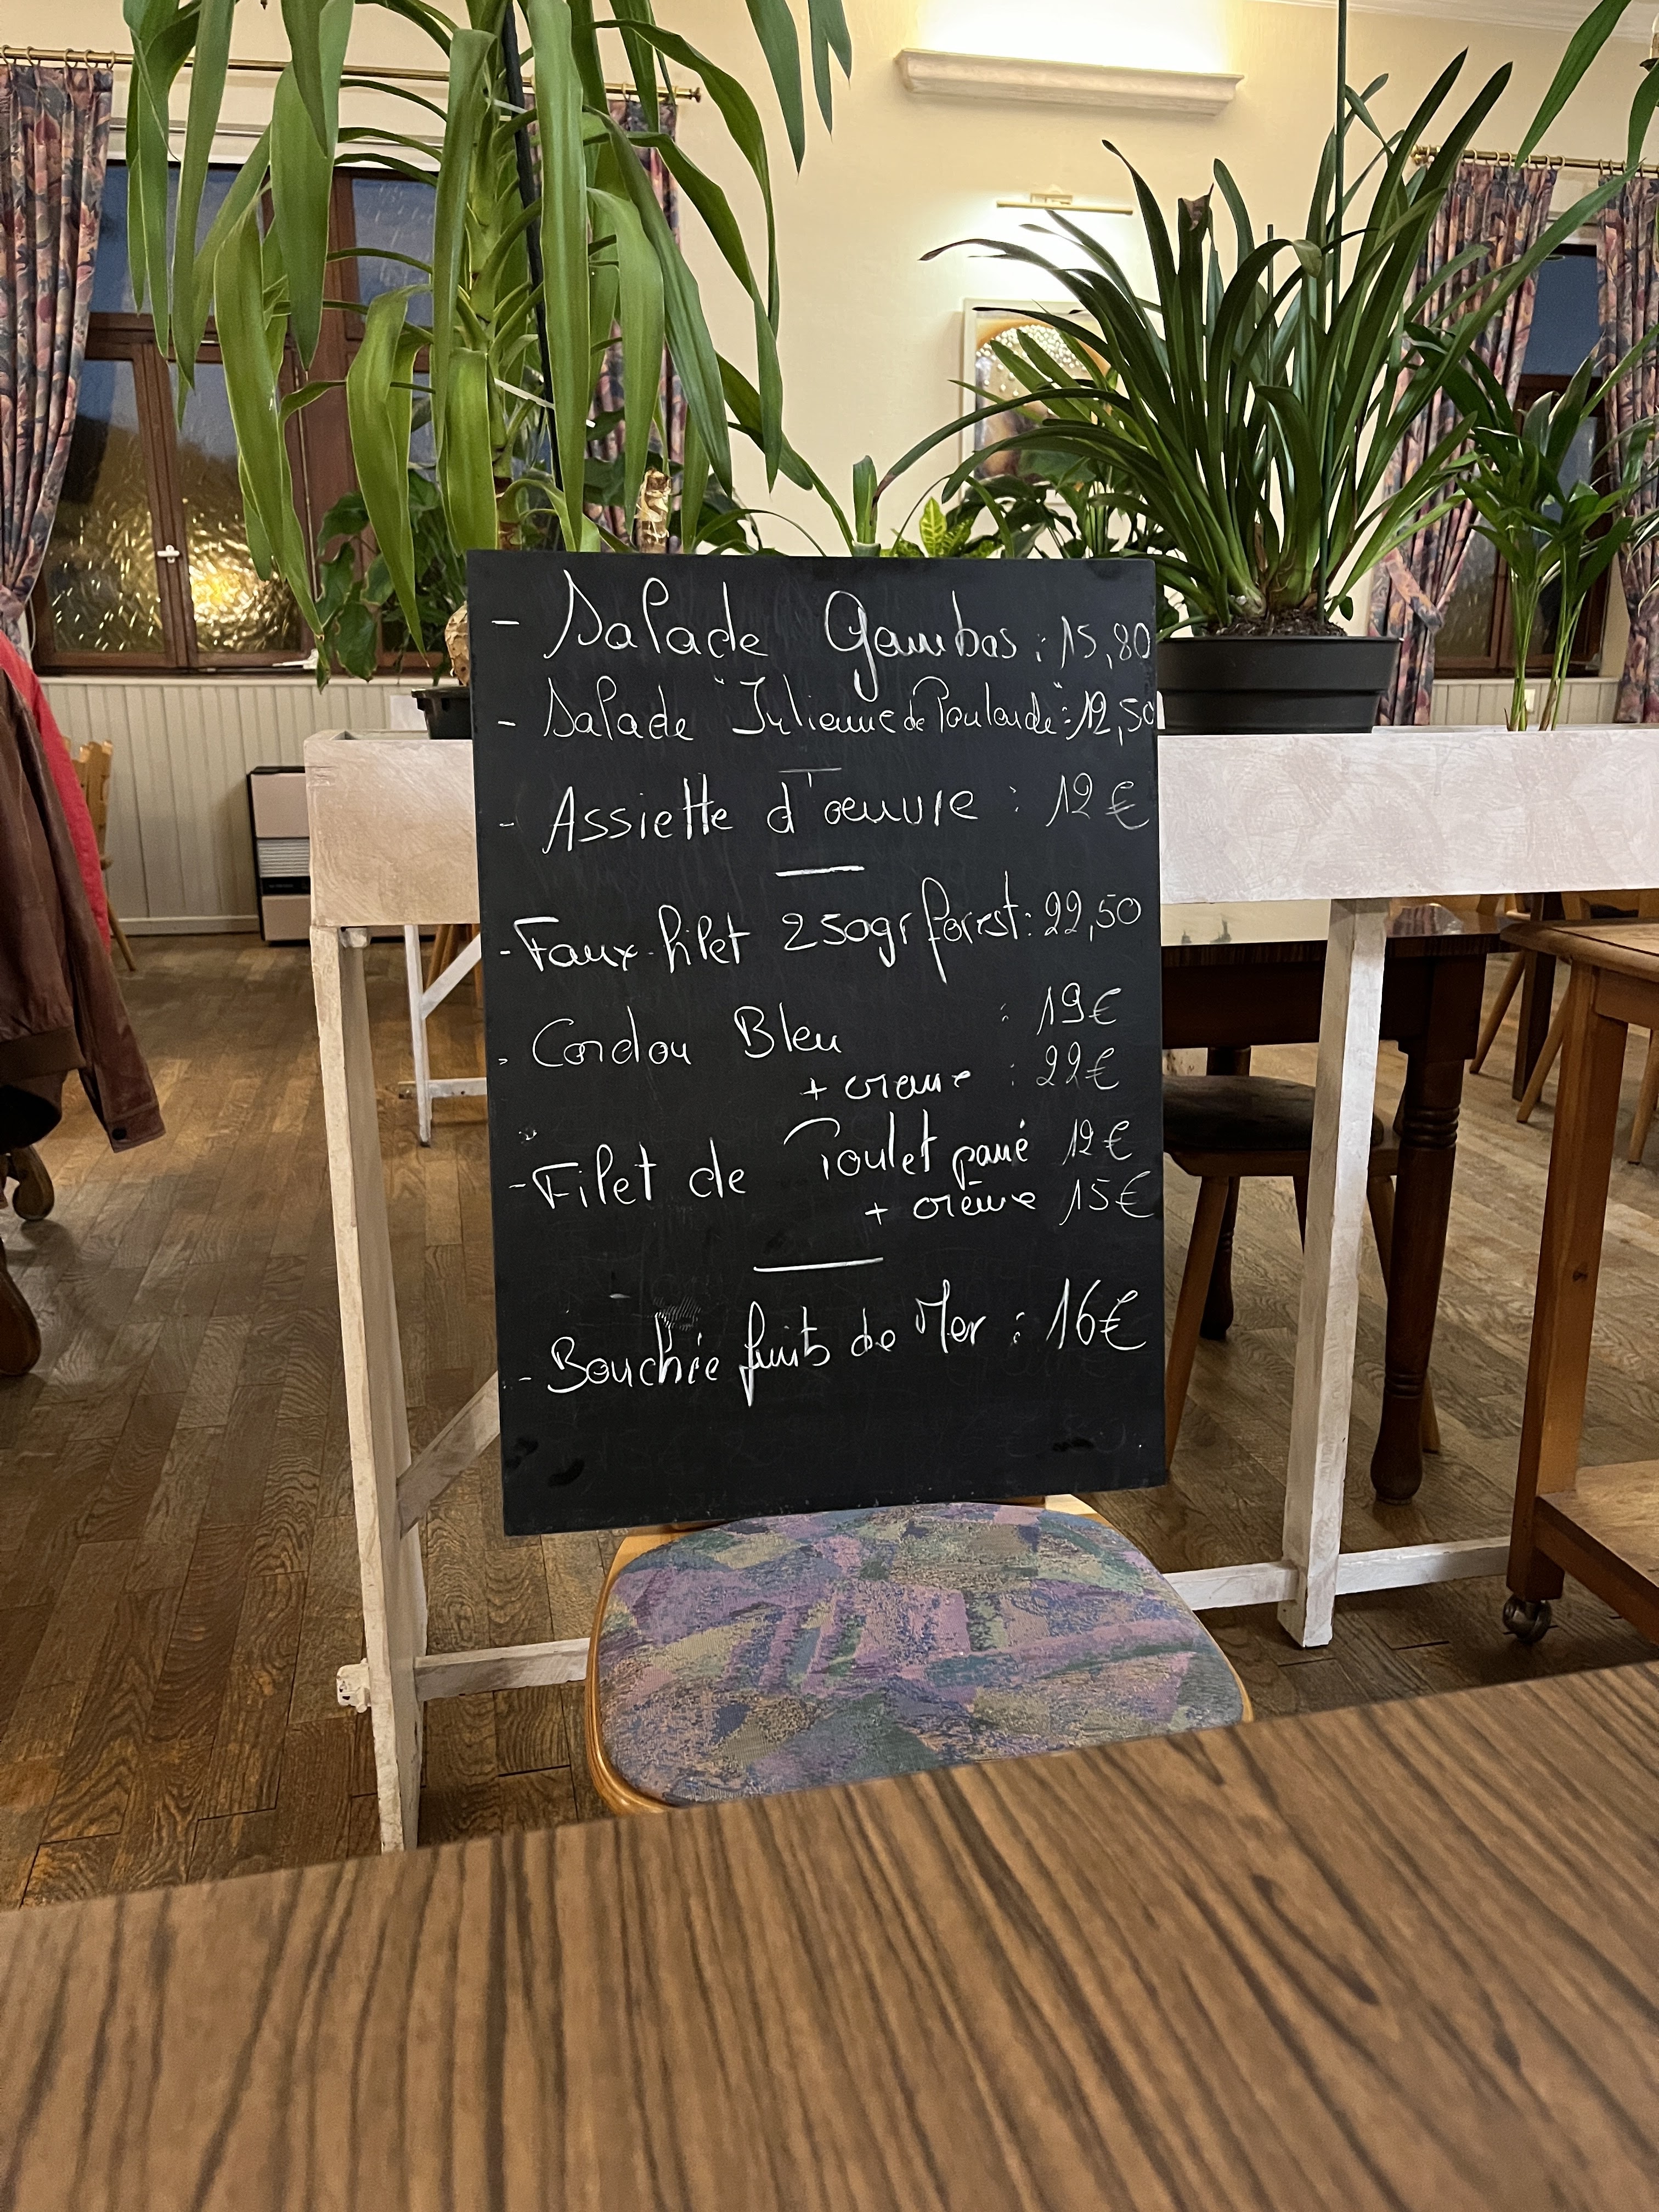 - Salade Gambas : 15,80
- Salade "Julienne de Poularde" : 12,50
- Assiette d'oeuvre : 12 €
- Faux-filet 250gr forest : 22,50
- Cordon Bleu : 19€
+ creme : 22€
- Filet de Poulet pané 12€
+ crème 15€
- Bouchée fruits de Mer : 16€